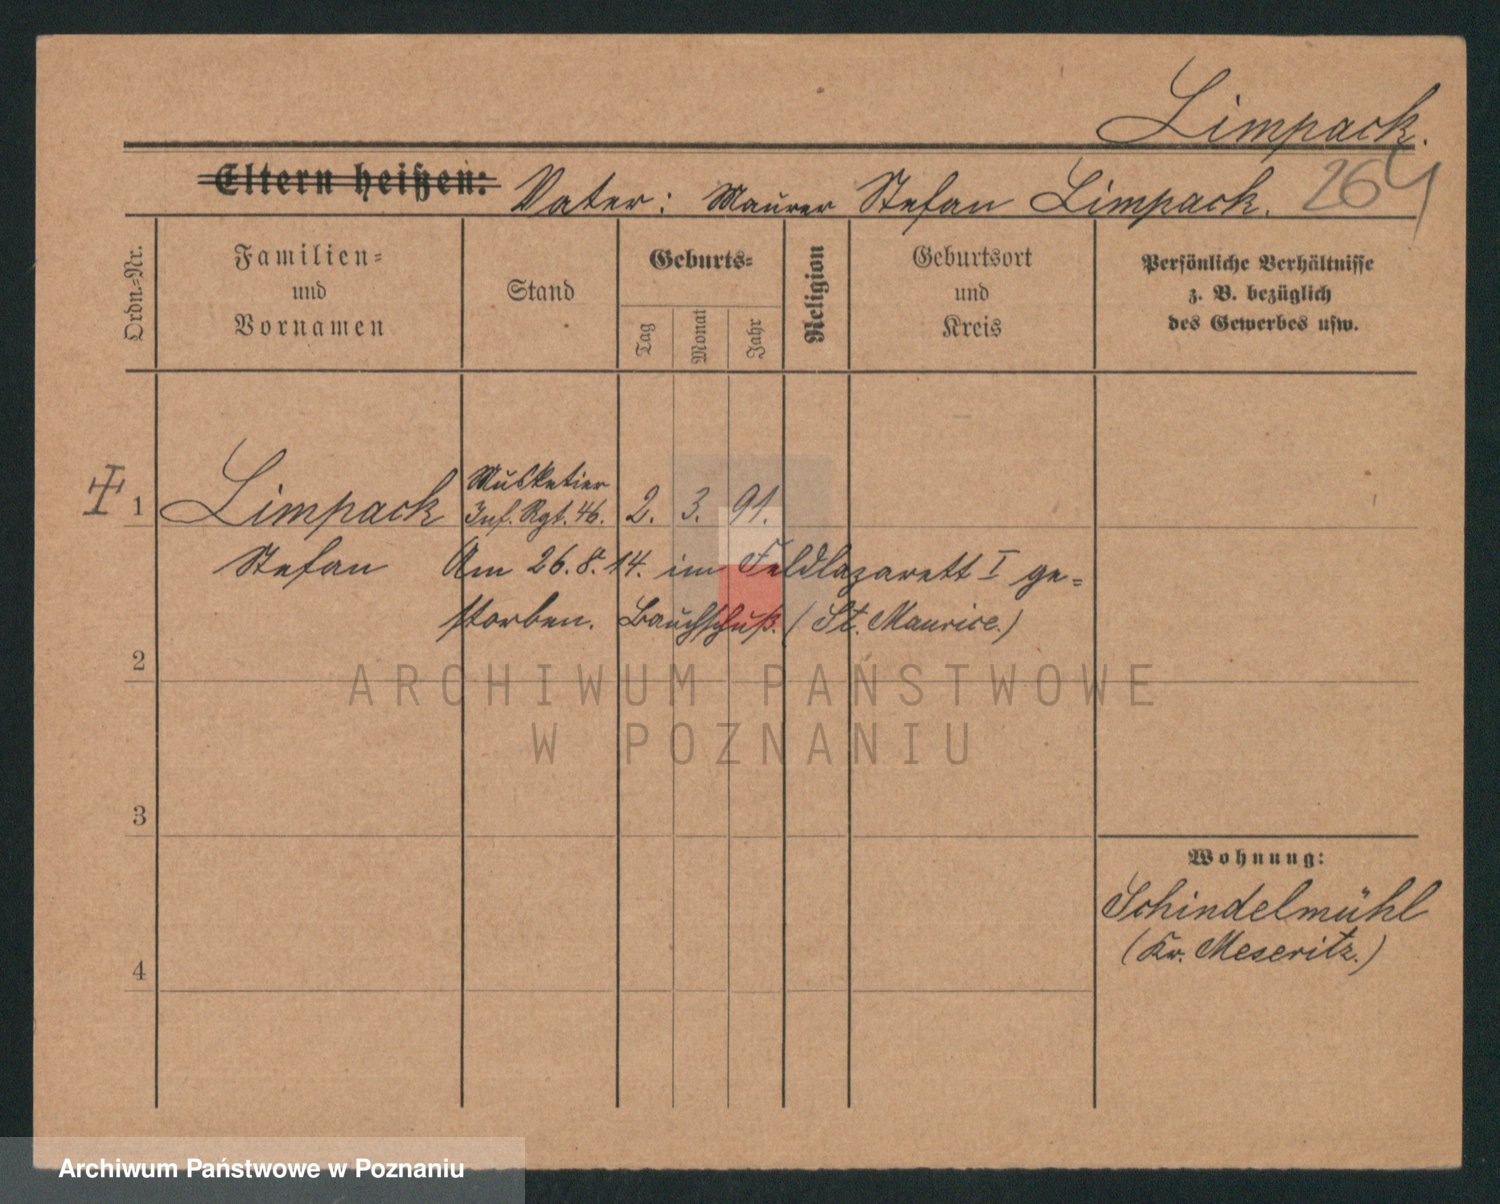 Limpack.
Eltern heißen: Vater: Maurer Stefan Limpack. 264
Ordn.-Nr.
Familien-
und
Vornamen
Stand
Geburts-
Tag
Monat
Jahr
Religion
Geburtsort
und
Kreis
Persönliche Verhältnisse
z. B. bezüglich
des Gewerbes usw.
Musketier
1 Limpack Inf. Rgt. 46. 2. 3. 91.
Stefan Am 26.8.14. im Feldlazarett I ge-
storben. Bauchschuß. (St. Maurice.)
2
ARCHIWUM PAŃSTWOWE
W POZNANIU
3
Wohnung:
Schindelmühl
(Kr. Meseritz.)
4
Archiwum Państwowe w Poznaniu